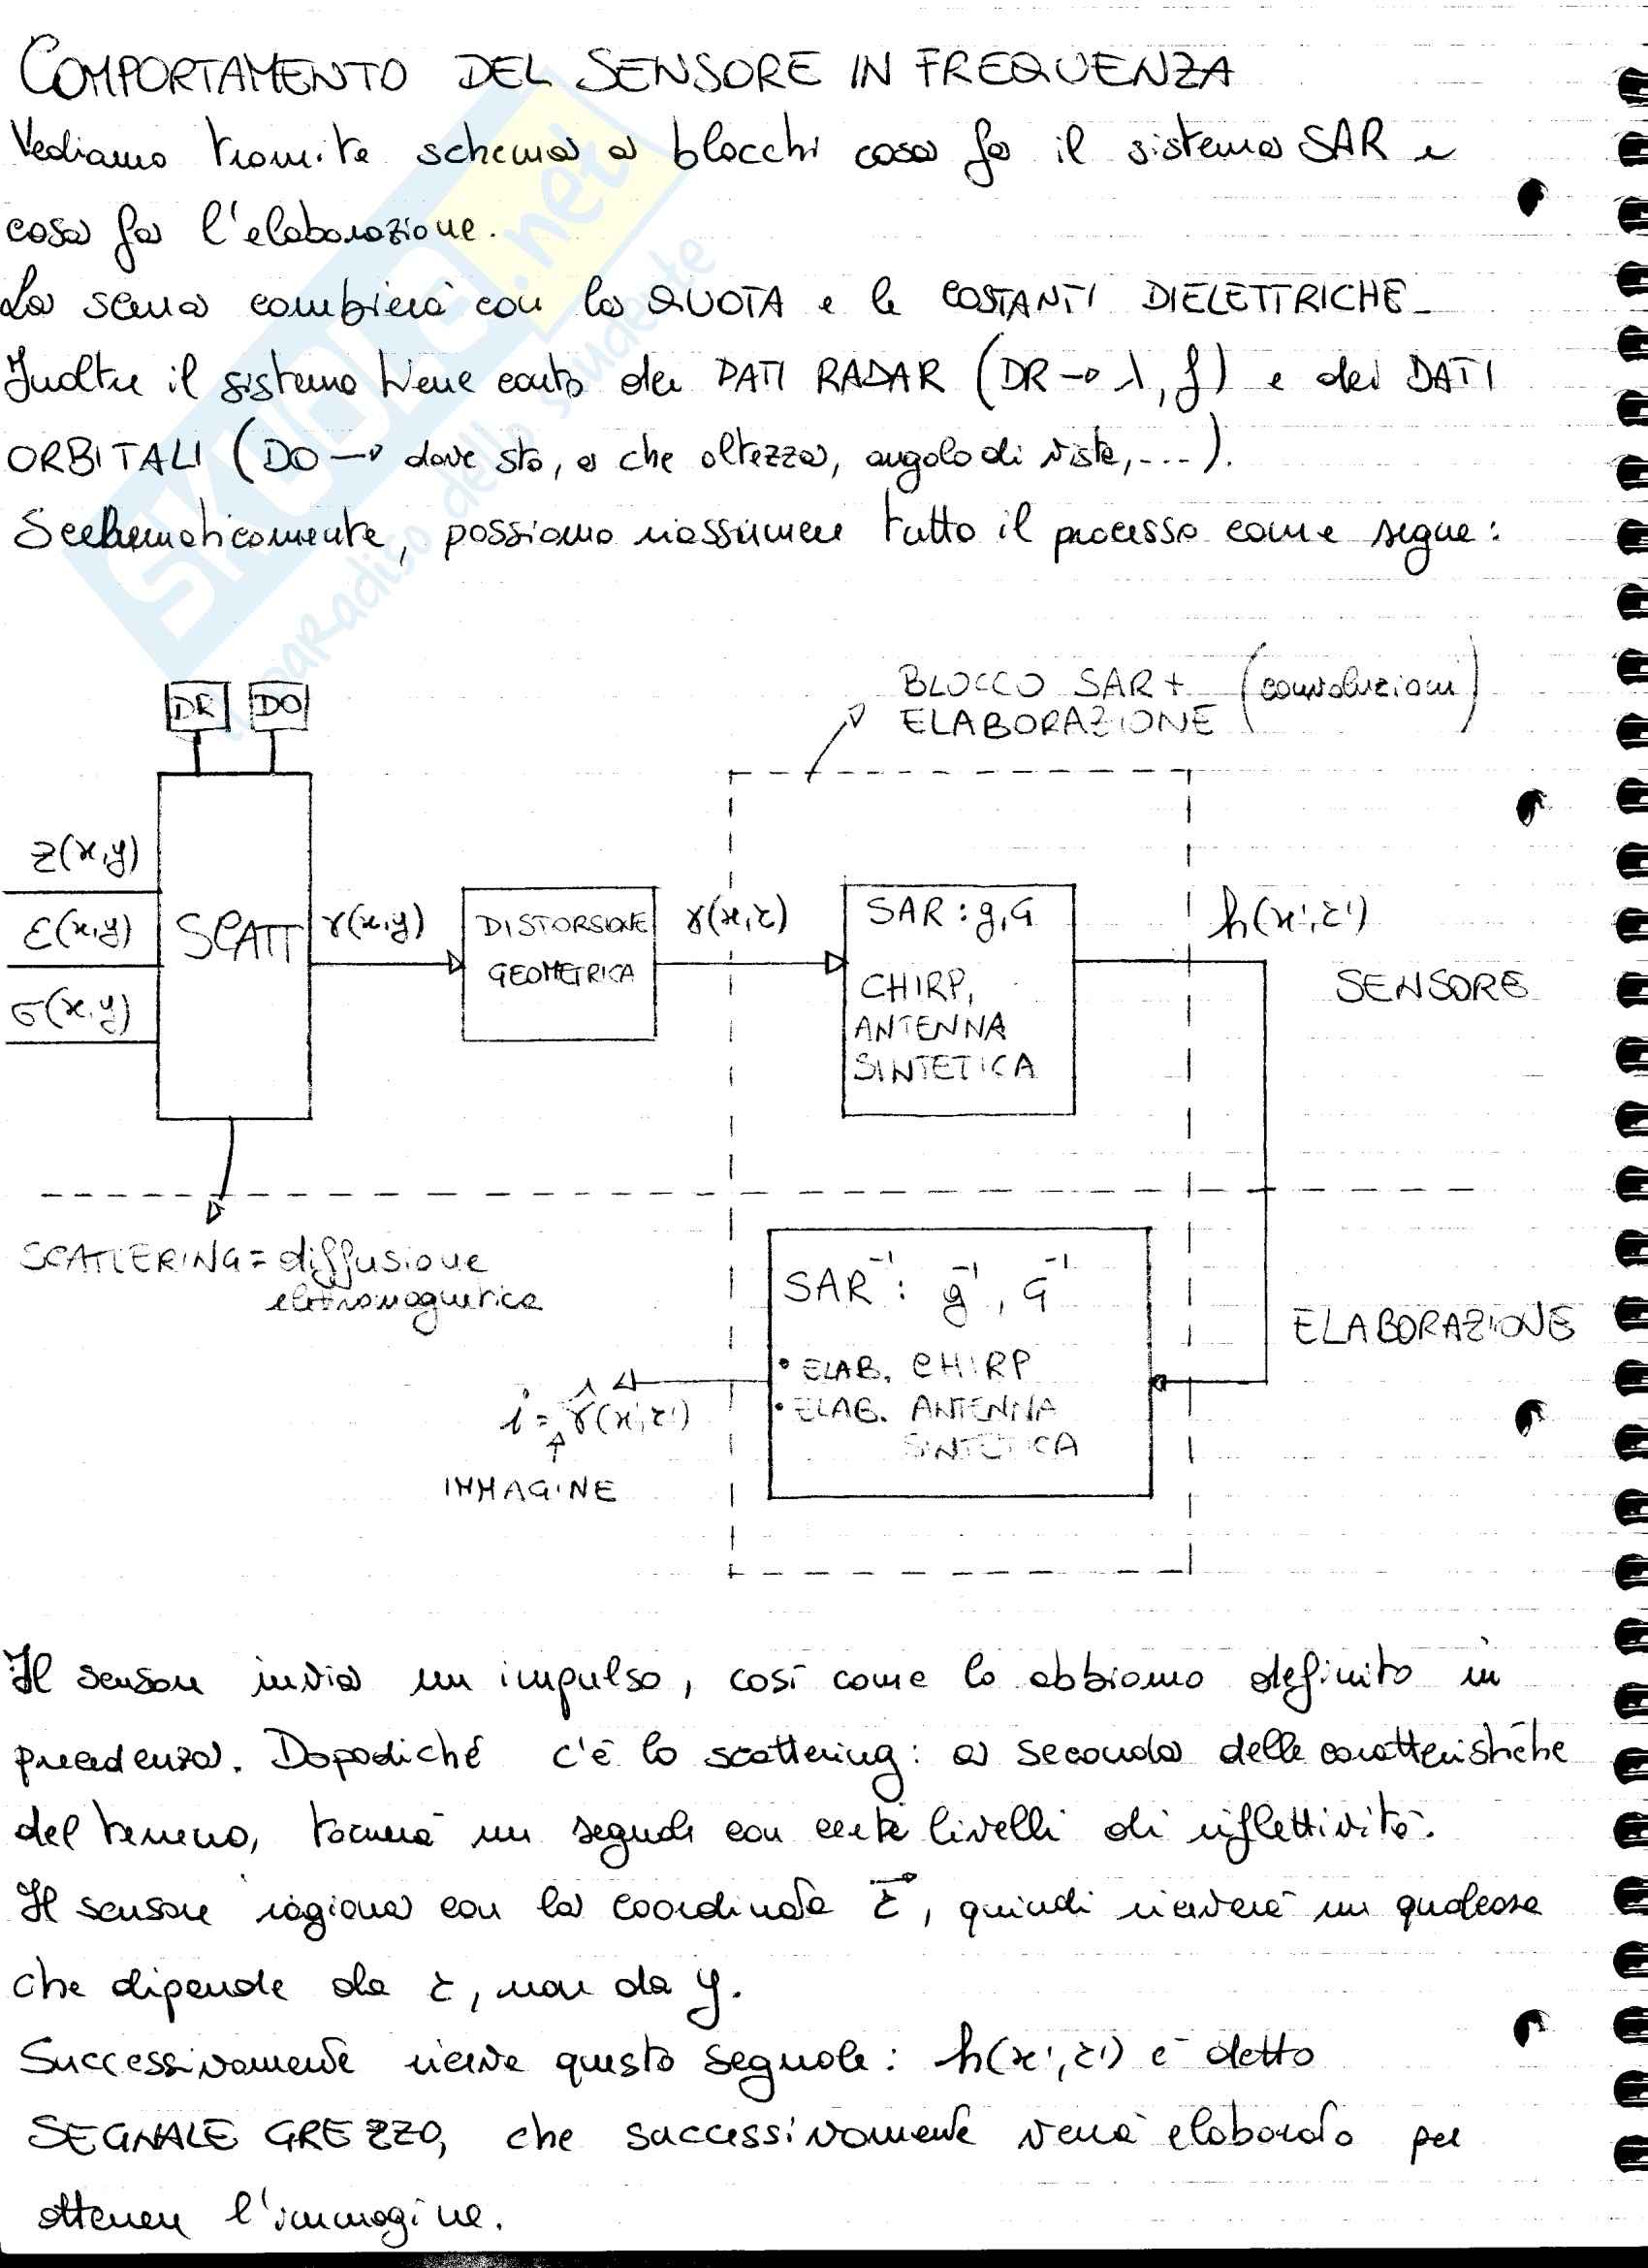 COMPORTAMENTO DEL SENSORE IN FREQUENZA
Vediamo tramite schema a blocchi cosa fa il sistema SAR e
cosa fa l'elaborazione.
La scena cambierà con la QUOTA e le COSTANTI DIELETTRICHE.
Inoltre il sistema tiene conto dei DATI RADAR (DR → λ, f) e dei DATI
ORBITALI (DO → dove sto, a che altezza, angolo di vista, ...).
Schematicamente, possiamo riassumere tutto il processo come segue:
BLOCCO SAR + (convoluzioni)
ELABORAZIONE
DR DO
z(x,y)
ε(x,y)
σ(x,y)
SCATT
γ(x,y)
DISTORSIONE
GEOMETRICA
γ(x,r)
SAR: g,G
CHIRP,
ANTENNA
SINTETICA
h(x',r')
SENSORE
SCATTERING = diffusione
elettromagnetica
SAR⁻¹: g⁻¹, G⁻¹
• ELAB. CHIRP
• ELAB. ANTENNA
SINTETICA
ELABORAZIONE
i = γ̂(x',r')
IMMAGINE
Il sensore invia un impulso, così come lo abbiamo definito in
precedenza. Dopodiché c'è lo scattering: a seconda delle caratteristiche
del terreno, tornerà un segnale con certi livelli di riflettività.
Il sensore ragiona con la coordinata r⃗, quindi riceverà un qualcosa
che dipende da r, non da y.
Successivamente riceve questo segnale: h(x',r') è detto
SEGNALE GREZZO, che successivamente verrà elaborato per
ottenere l'immagine.
SKUOLA.net
il paRadiso dello studente